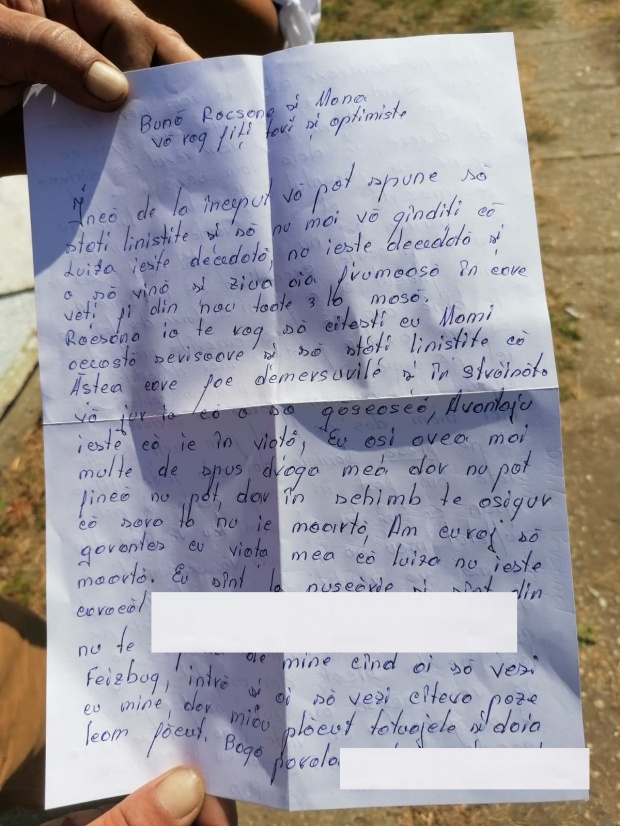 Bună Rocsana și Mona
Vă rog fiți tari și optimiste
Încă de la început vă pot spune să
stati linistite și să nu mai vă ginditi că
Luiza ieste decedată, nu ieste decedată și
o să vină și ziua aia frumoasă în care
veti fi din nou toate 3 la masă.
Rocsana io te rog să citesti cu Mami
această serisoare și să stăti linistite că
Astea care fac demersurile și în străinăta
vă jur io că o să găsească, Avantaju
ieste că ie în viată, Eu asi avea mai
multe de spus draga mea dar nu pot
fincă nu pot, dar în schimb te asigur
că sora ta nu ie moartă, Am curaj să
garantes cu viata mea că Luiza nu ieste
moartă. Eu sînt la puscărie și sînt din
caracăl
nu te de mine cînd oi să vezi
Feizbug, intră și oi să vezi citeva poze
cu mine dar miau plăcut tatuajele și daia
leam făcut. Bagă parola